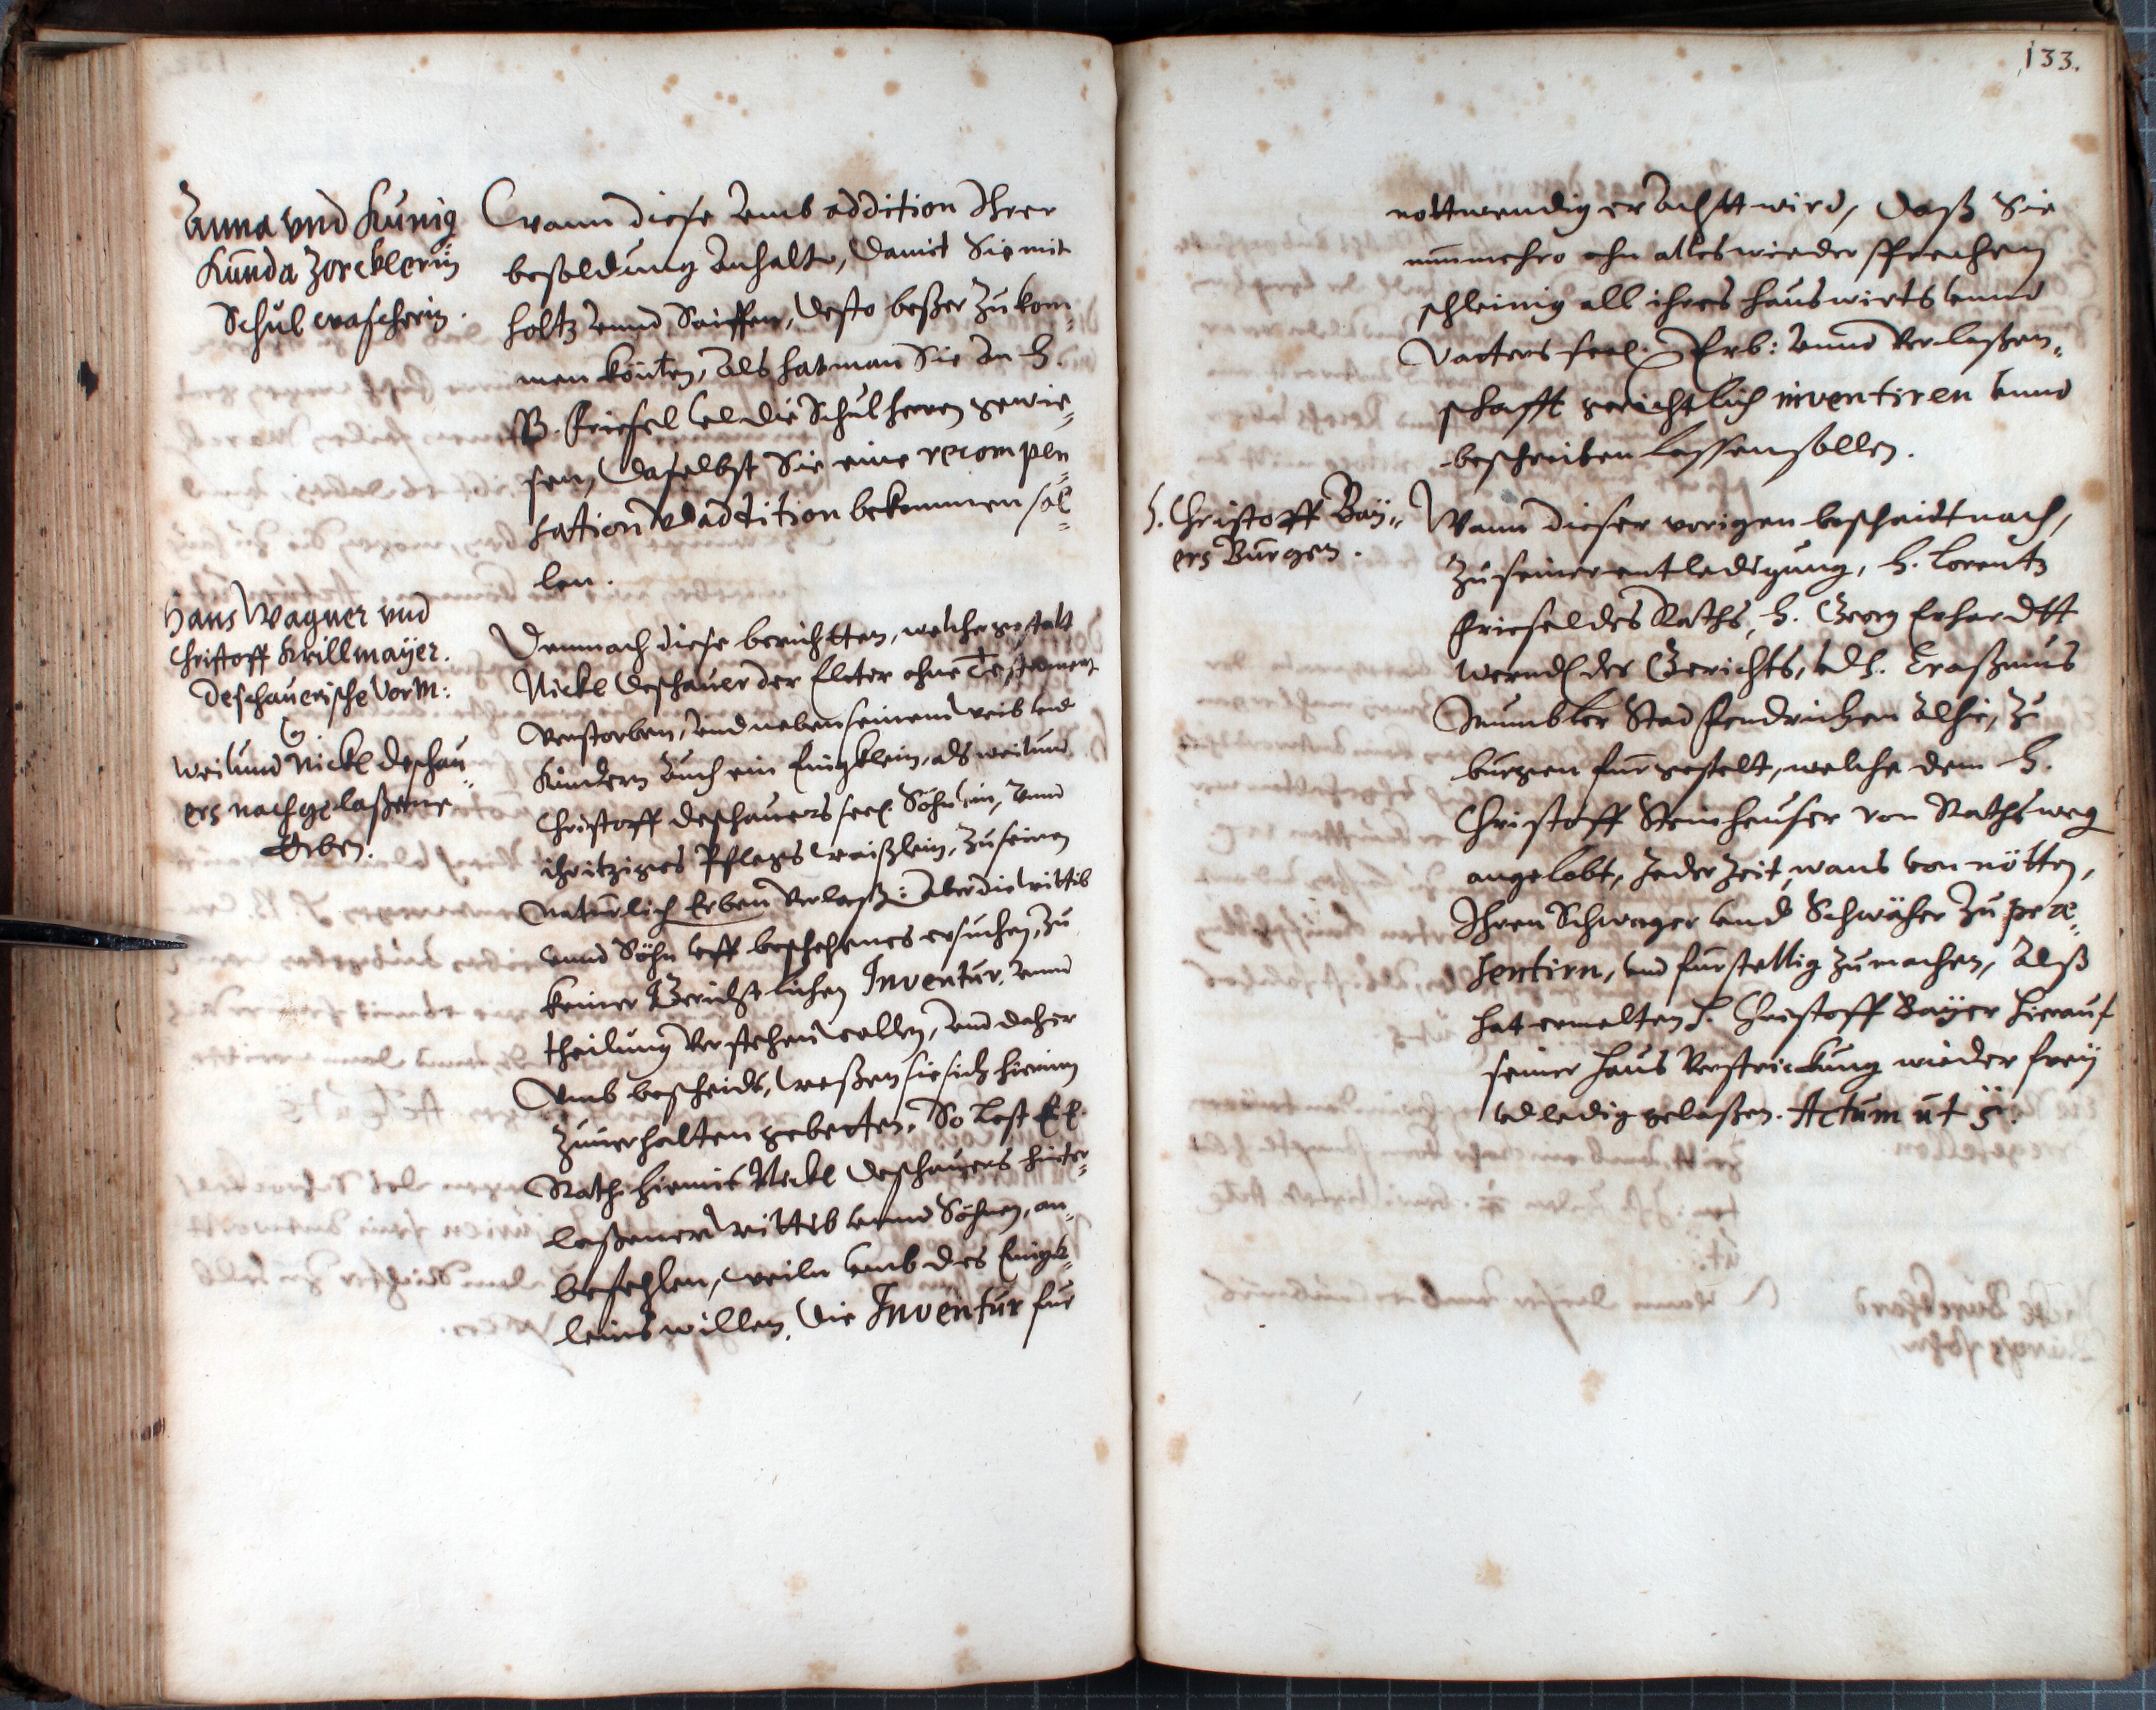 Anna vnd Künig
Kunda Zorcklerin
Schulwascherin.
Wann diese vmb addition Ihrer
besoldung anhalte, damit Sie mit
holtz vnnd Saiffen, desto beßer Zu kom¬
men könten, Als hat man Sie an H.
Friesel die Schulherren gewie¬
sen, daselbst Sie eine recompen¬
sation addition bekommen sol¬
len.
Hans Wagner vnd
Christoff Krillmaÿer.
Deschauerische Vorm:
Weilund Nickl Deschau¬
ers nachgelaßene
Erben.
Demnach diese berichtten, welcher gestalt
Nickl Deschauer der Elter ohne Testament
verstorben, vnd neben seinem weib vnd
Kindern auch ein Enigklein, als weilund
Christoff Deschauers seel. Söhnlein, vnnd
ihr itziges Pflegs waißlein, Zu seinen
Natürlich Erben verlaß: aber die wittib
vnnd Söhn vff beschehenes ersuchen, Zu
keiner Gerichtlichen Inventur, vnnd
theilung verstehen wollen, vnd daher
Vmb bescheidt, weßen sie sich hierinn
Zuuerhalten gebetten. So Lest E. E.
Rath hiemit Nickl Deschauers hinter¬
laßener wittib vnnd Söhnen, an¬
befehlen, weiln vmb des Enigk¬
leins willen, die Inventur für
133.
nottwendig erachtt wird, daß Sie
nunmehro ohn alles wieder sprechen
schleinig all ihres hauswirts vnnd
Vatters seel. Erb: vnnd Verlaßen¬
schafft gerichtlich inventiren vnnd
beschreiben Lassen sollen.
H. Christoff Baÿ¬
ers Bürgen.
Wann dieser vorigen bescheidt nach,
Zu seiner entledigung, H. Lorentz
Friesel des Raths, H. Georg Erhardtt
Werndl des Gerichts, vnd H. Eraßmus
Stad fendrichen Alhie, Zu
bürgen fürgestelt, welche dem H.
Christoff Steinheuser von Rathsweg
angelobt, Jeder Zeit, wans von nötten,
Ihren Schwager vnd Schwäher Zu præ¬
sentirn, vnd fürstellig Zumachen, Alß
hat ermelten H. Christoff Baÿer hierauf
seiner haus Verstrickung wieder freÿ
vnd ledig gelaßen. Actum ut s.